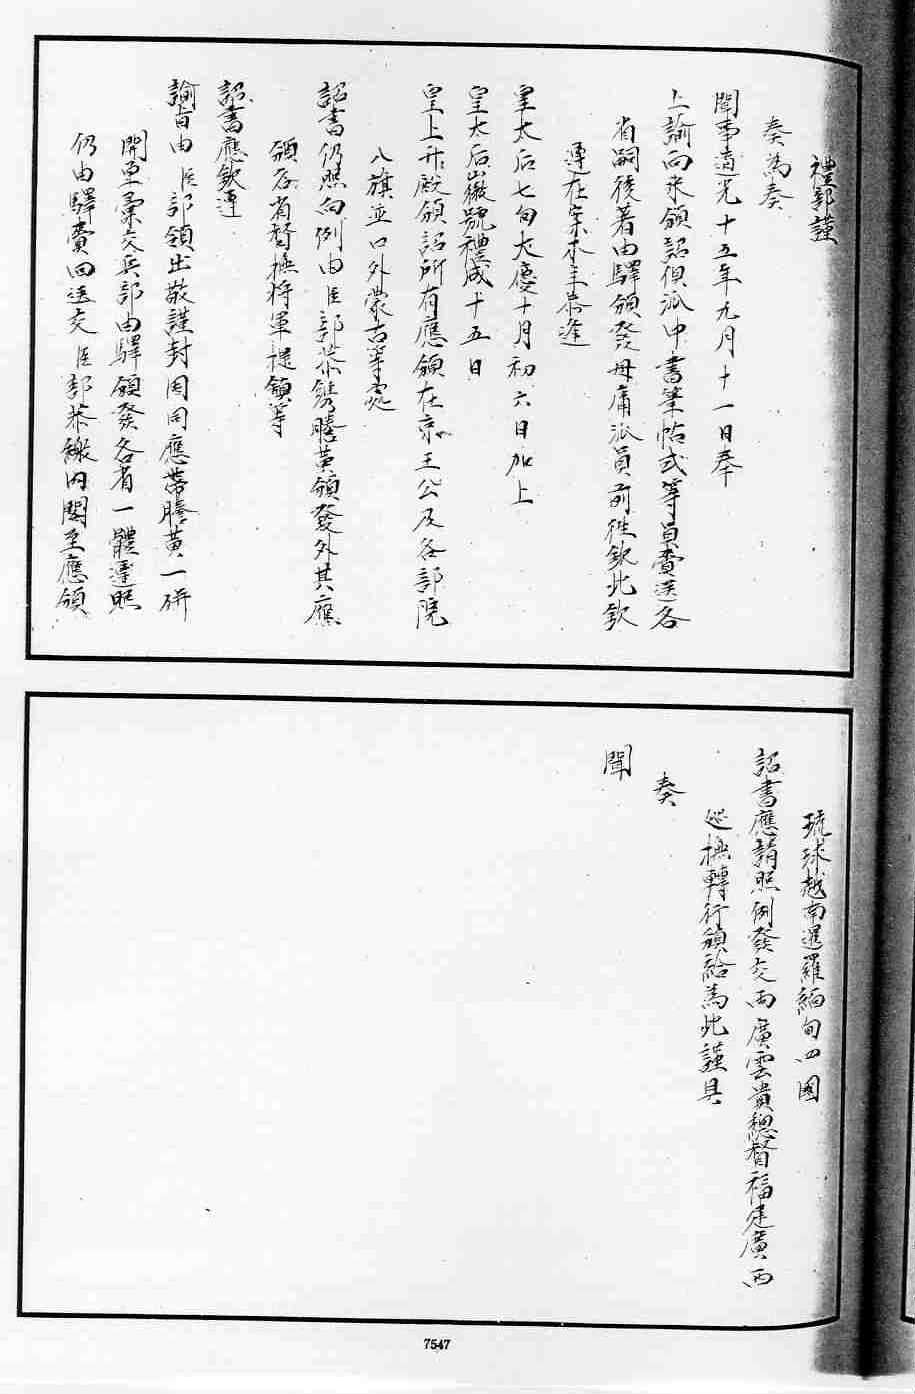 禮部謹
奏為奏
聞事道光十五年九月十一日奉
上諭向來頒詔俱派中書筆帖式等員賫送各
省嗣後著由驛頒發毋庸派員前徃欽此欽
遵在案本主恭逢
皇太后七旬大慶十月初六日加上
皇太后徽號禮成十五日
皇上升殿頒詔所有應頒在京王公及各部院
八旗並口外蒙古等處
詔書仍照向例由臣部恭鐫謄黃頒發外其應
頒各省督撫將軍提鎮等
詔書應欽遵
諭旨由臣部領出敬謹封固同應帶謄黃一併
開單彙交兵部由驛頒發各省一體遵照
仍由驛賫回送交臣部恭繳內閣至應頒
琉球越南暹羅緬甸四國
詔書應請照例發交兩廣雲貴總督福建廣西
巡撫轉行頒給為此謹具
奏
聞
7547